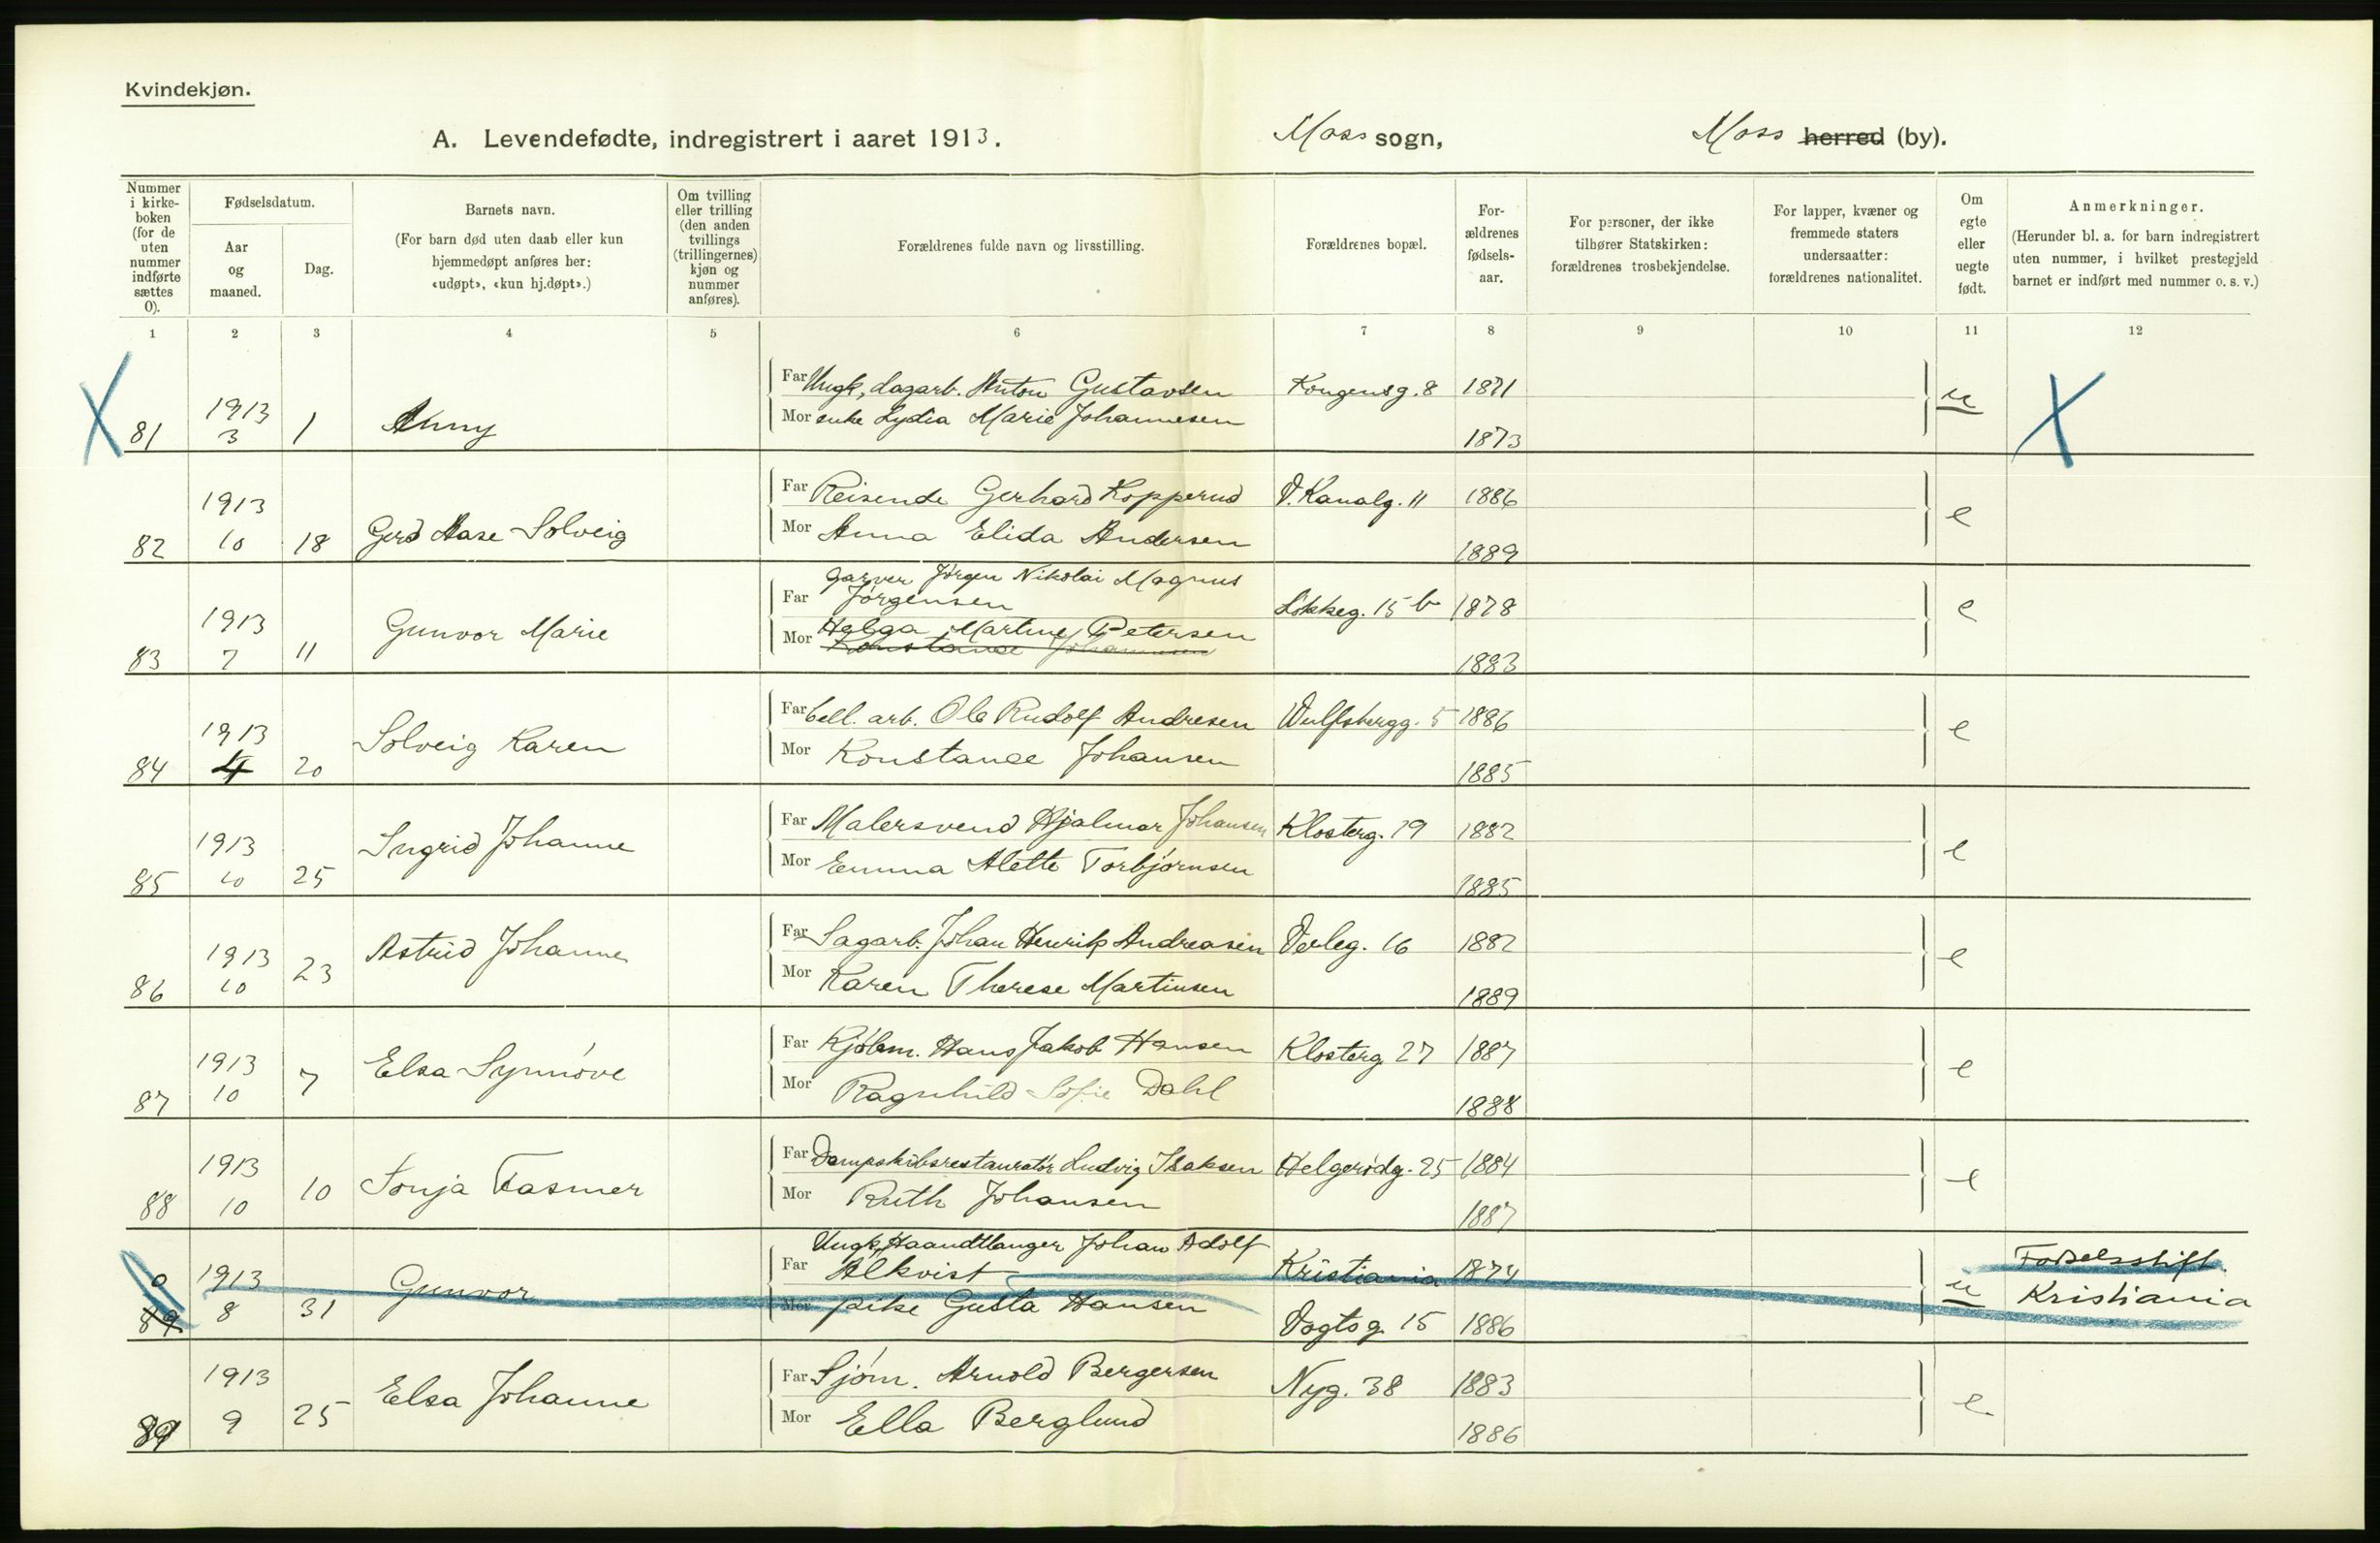 Kvindekjøn.
A. Levendefødte, indregistrert i aaret 1913. Moss sogn, Moss herred (by).
Nummer i kirke-boken (for de uten nummer indførte sættes 0).
Fødselsdatum.
Aar og maaned.
Dag.
Barnets navn.
(For barn død uten daab eller kun hjemmedøpt anføres her: «udøpt», «kun hj.døpt».)
Om tvilling eller trilling (den anden tvillings (trillingernes) kjøn og nummer anføres).
Forældrenes fulde navn og livsstilling.
Forældrenes bopæl.
For-ældrenes fødsels-aar.
For personer, der ikke tilhører Statskirken: forældrenes trosbekjendelse.
For lapper, kvæner og fremmede staters undersaatter: forældrenes nationalitet.
Om egte eller uegte født.
Anmerkninger.
(Herunder bl. a. for barn indregistrert uten nummer, i hvilket prestegjeld barnet er indført med nummer o. s. v.)
1 2 3 4 5 6 7 8 9 10 11 12
Far Ungk, dagarb. Anton Gustavsen Kongensg. 8 1871 u
81 1913 3 1 Anny Mor enke Lydia Marie Johannesen 1873
Far Reisende Gerhard Kopperud V. Kanalg. 11 1886 e
82 1913 10 18 Gerd Aase Solveig Mor Anna Elida Andersen 1889
Garver Jørgen Nikolai Magnus
Far Jørgensen Løkkeg. 15 b 1878 e
83 1913 7 11 Gunvor Marie Mor Helga Martine Petersen 1883
Konstance Johannesen
Far Cell. arb. Ole Rudolf Andresen Wulfsbergg. 5 1886 e
84 1913 4 20 Solveig Karen Mor Konstance Johansen 1885
Far Malersvend Hjalmar Johansen Klosterg. 19 1882 e
85 1913 10 25 Ingrid Johanne Mor Emma Alette Torbjørnsen 1885
Far Sagarb. Johan Henrik Andreasen 16 1882 e
86 1913 10 23 Astrid Johanne Mor Karen Therese Martinsen 1889
Far Kjøbm. Hans Jakob Hansen Klosterg. 27 1887 e
87 1913 10 7 Elsa Synnøve Mor Ragnhild Sofie Dahl 1888
Far Dampskibsrestauratør Ludvig Isaksen Helgerødg. 25 1884 e
88 1913 10 10 Sonja Tasmer Mor Ruth Johansen 1887
Ungk, Haandtlanger Johan Adolf Fødselsstift.
0 1913 Gunvor Far Alkvist Kristiania 1874 u Kristiania
89 8 31 Mor pike Gusta Hansen Vogtsg. 15 1886
Far Sjøm. Arnold Bergersen Nyg. 38 1883 e
89 1913 9 25 Elsa Johanne Mor Ella Berglund 1886